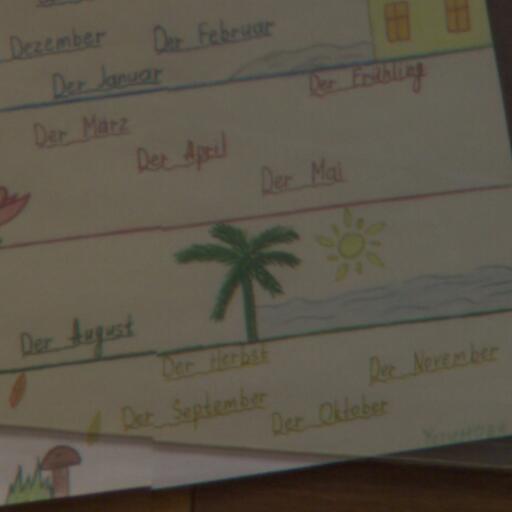 Dezember
Der Februar
Der Januar
Der Frühling
Der März
Der April
Der Mai
Der August
Der Herbst
Der November
Der September
Der Oktober